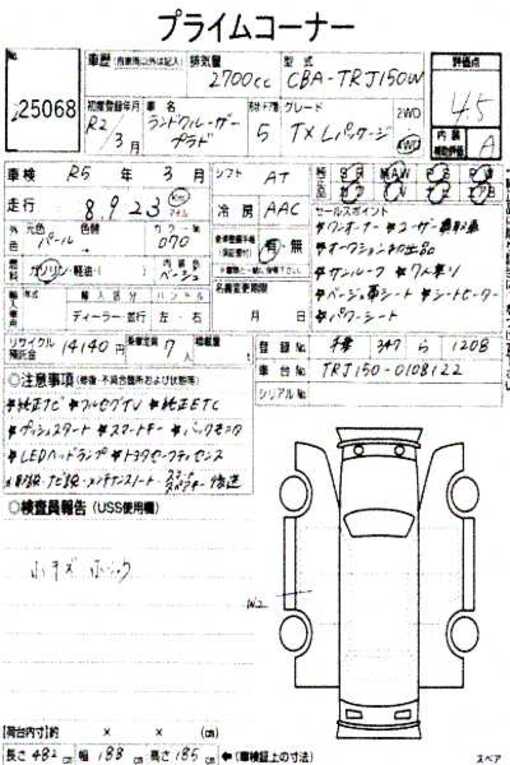 プライムコーナー
No. 25068
車歴 (自家用以外は記入) 排気量 2700cc 型式 CBA-TRJ150W 評価点 4.5
初度登録年月 R2/3月 車名 ランドクルーザープラド ドア形状 5 グレード TX Lパッケージ 2WD 4WD 内装補助評価 A
車検 R5年3月 シフト AT SR AW PS PW
走行 8,923 Km マイル 冷房 AAC カワ TV ナビ エアB
外色 元色 パール 色替 → カラーNo. 070 有・無
セールスポイント
*ワンオーナー *ユーザー買取車
*オークション初出品
*サンルーフ *7人乗り
*ベージュ革シート *シートヒーター
*パワーシート
燃料 ガソリン・軽油・( ) 内装色 ベージュ
名義変更期限 月 日
輸入車 年式 輸入区分 ディーラー・並行 ハンドル 左・右
リサイクル預託金 14140円 乗車定員 7人 積載量 t
登録No. 千葉 347 ら 1208
車台No. TRJ150-0108122
シリアルNo.
○注意事項 (修復・不具合箇所および状態等)
*純正ナビ *フルセグTV *純正ETC
*プッシュスタート *スマートキー *バックモニタ
*LEDヘッドランプ *トヨタセーフティセンス
*取説・ナビ説・メンテナンスノート・スマートスペアキー 後送
○検査員報告 (USS使用欄)
小キズ 小シック
W2
[荷台内寸]約 × × (cm)
長さ 482 cm 幅 188 cm 高さ 185 cm ←(車検証上の寸法)
スペア